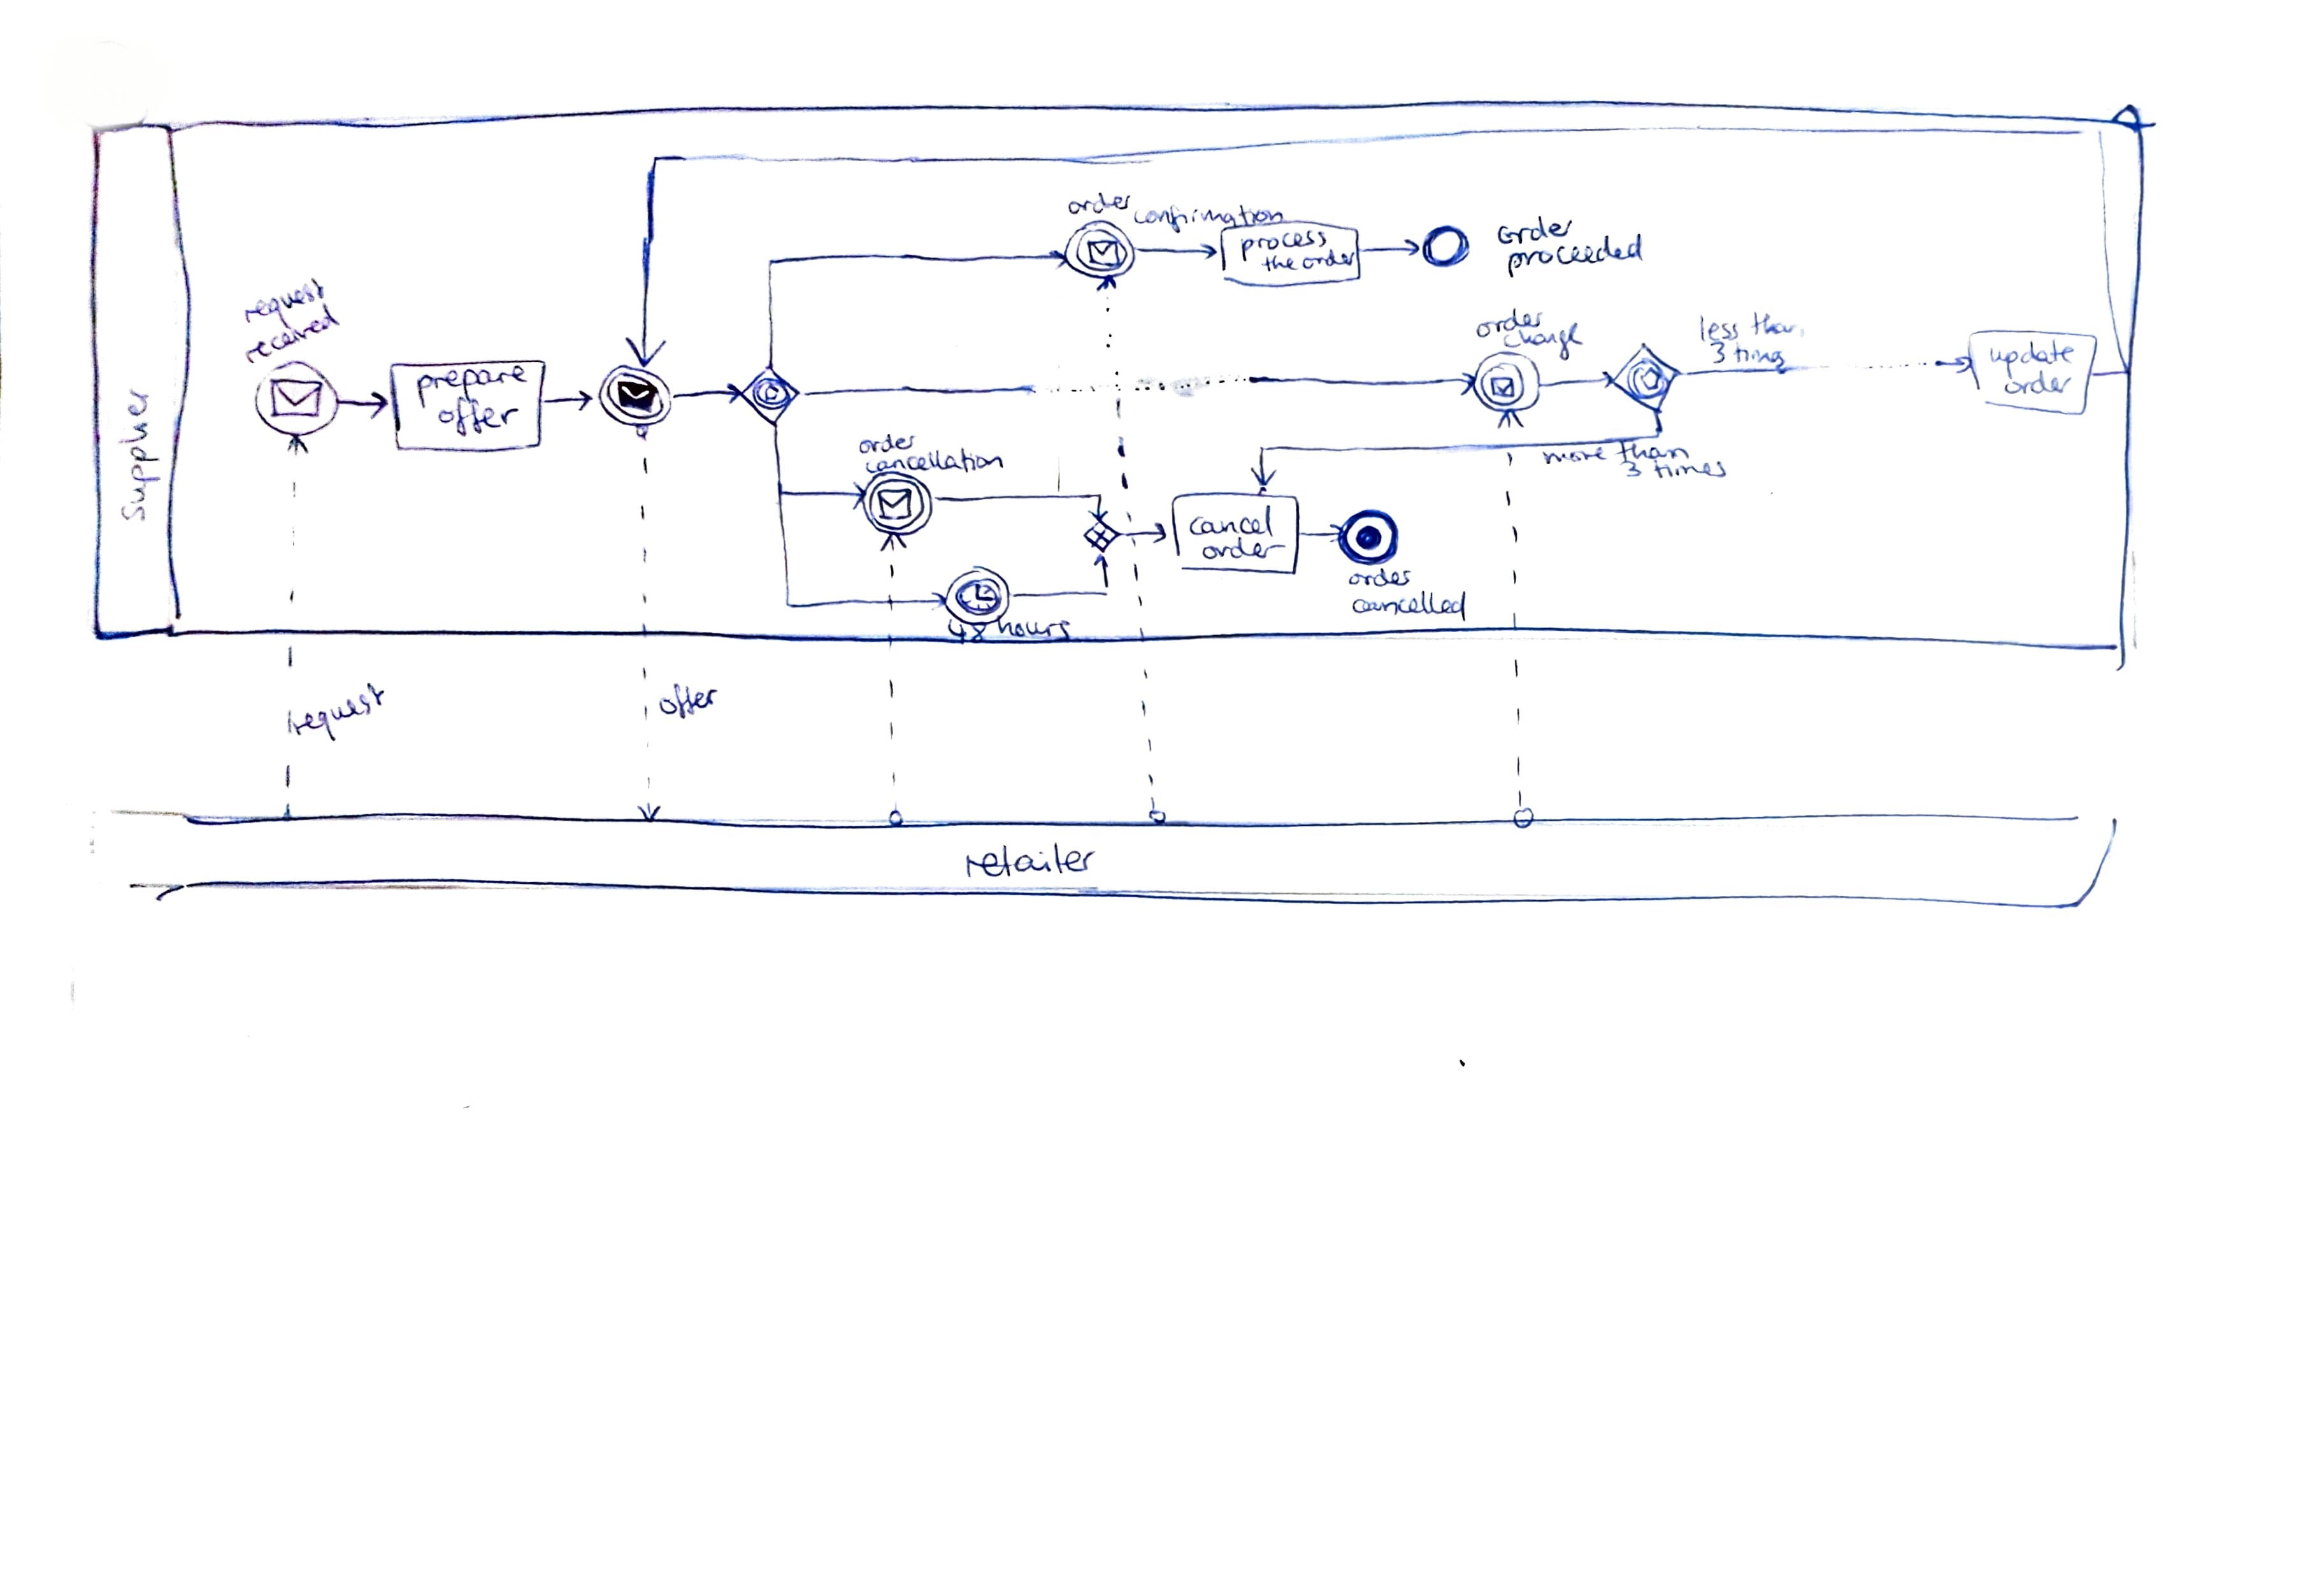 Supplier
request
received
prepare
offer
order
confirmation
process
the order
order
proceeded
order
change
less than
3 times
update
order
more than
3 times
order
cancellation
48 hours
cancel
order
order
cancelled
request
offer
retailer